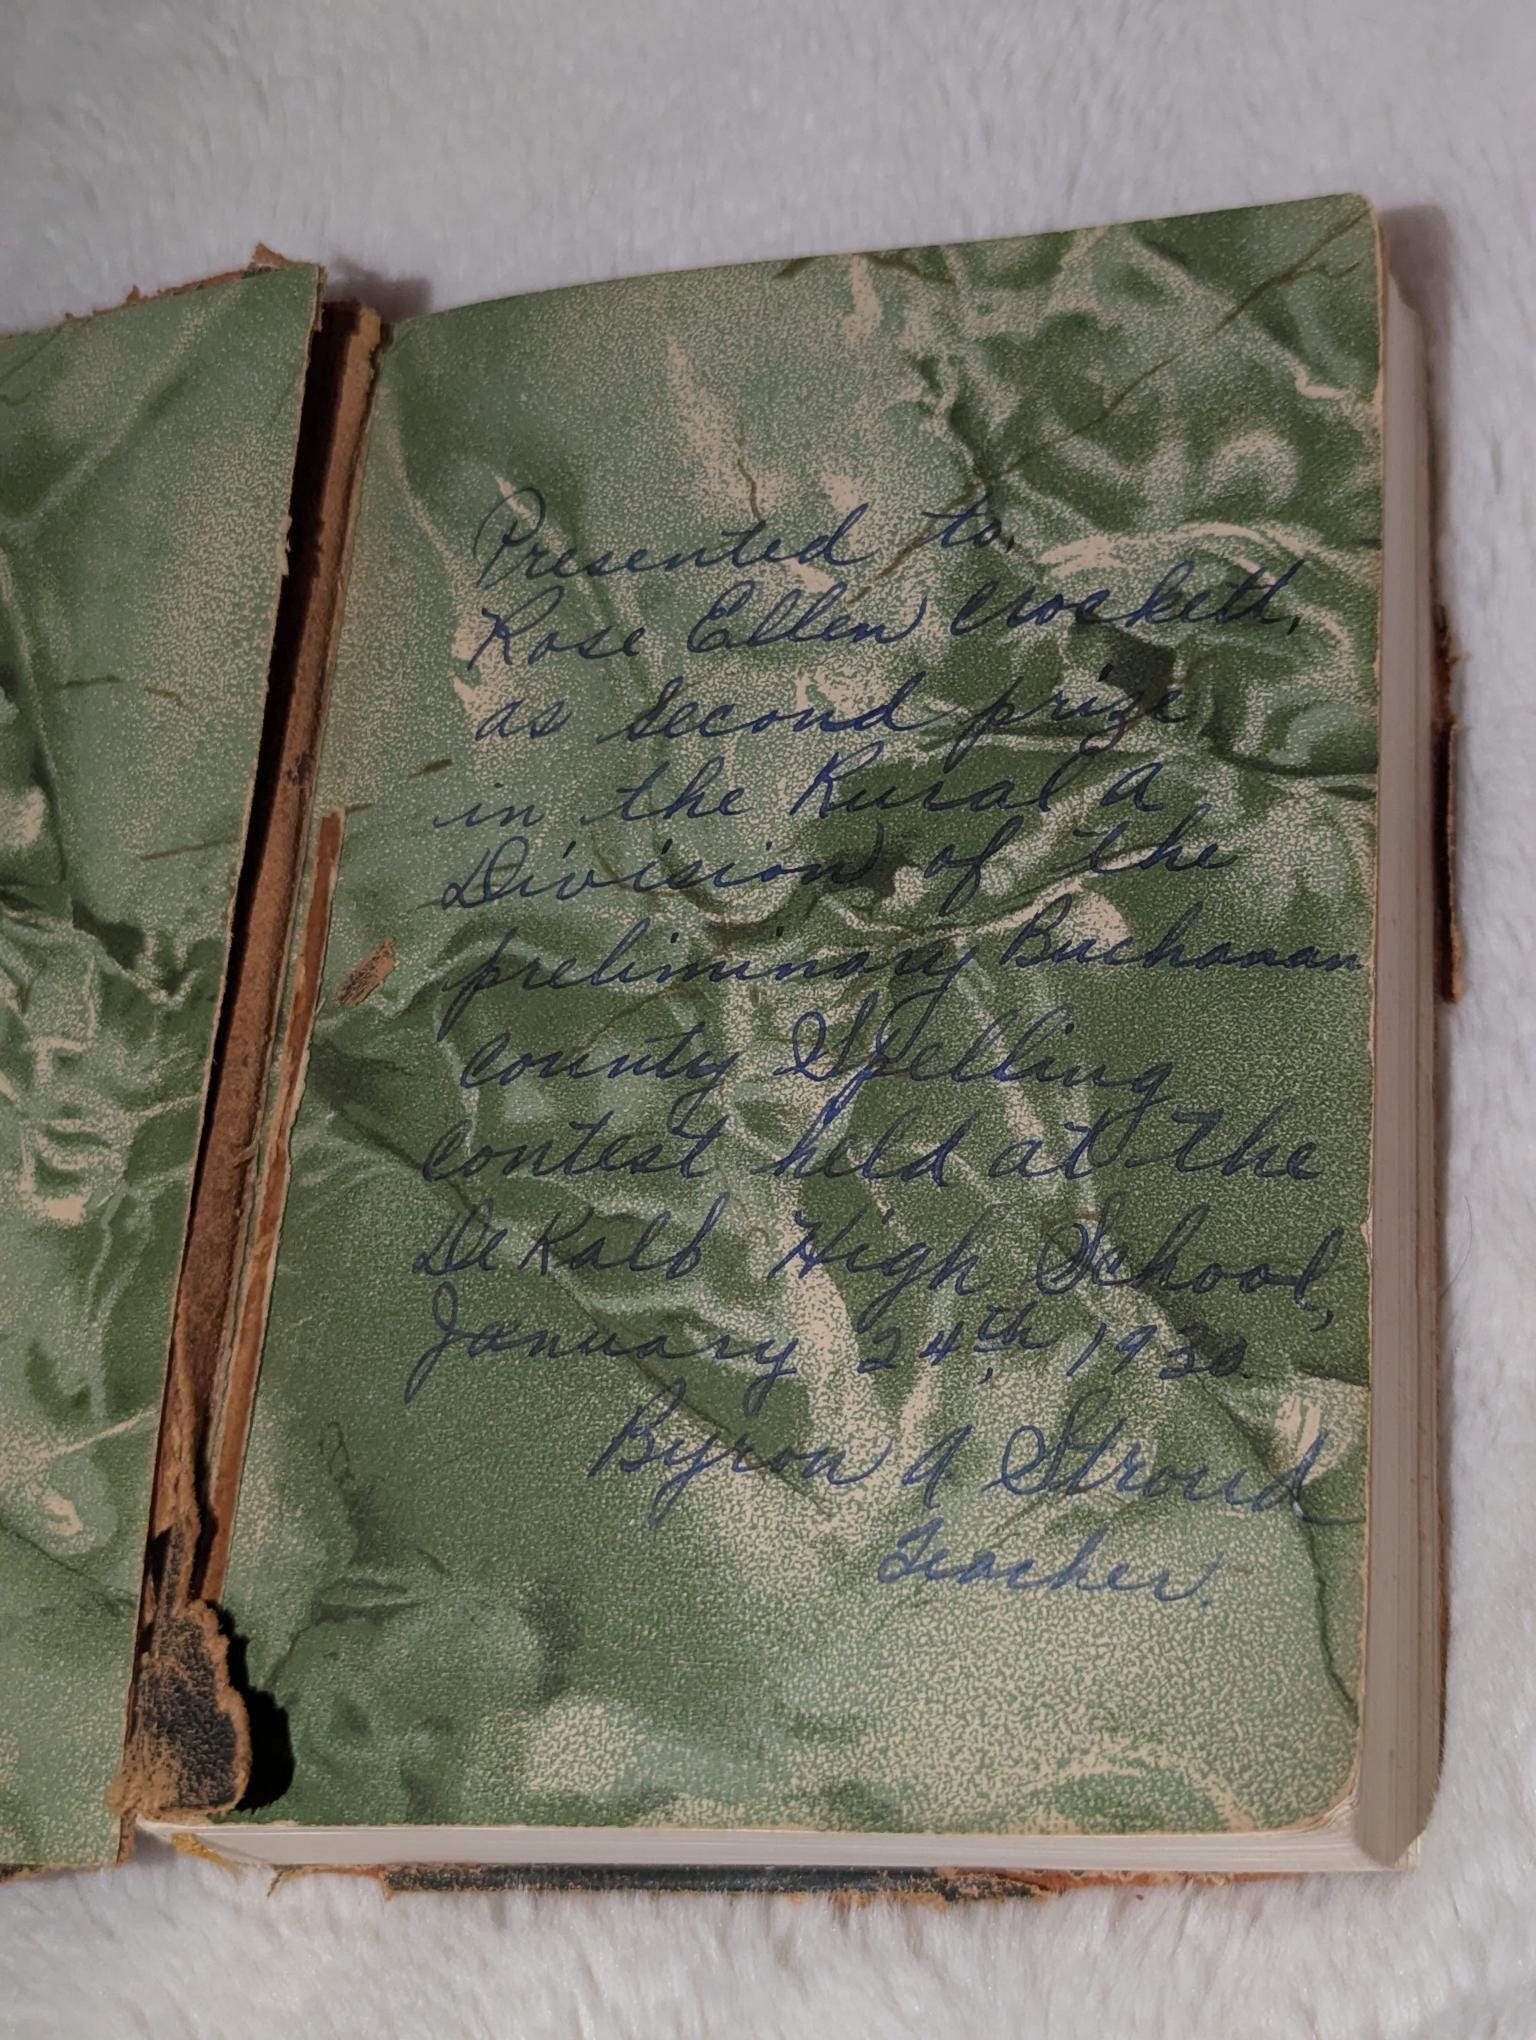 Presented to,
Rose Ellen Crockett,
as second prize
in the Rural A
Division of the
preliminary Buchanan
county Spelling
contest held at the
DeKalb High School,
January 24th, 1930.
Byron A Stroud
Teacher.